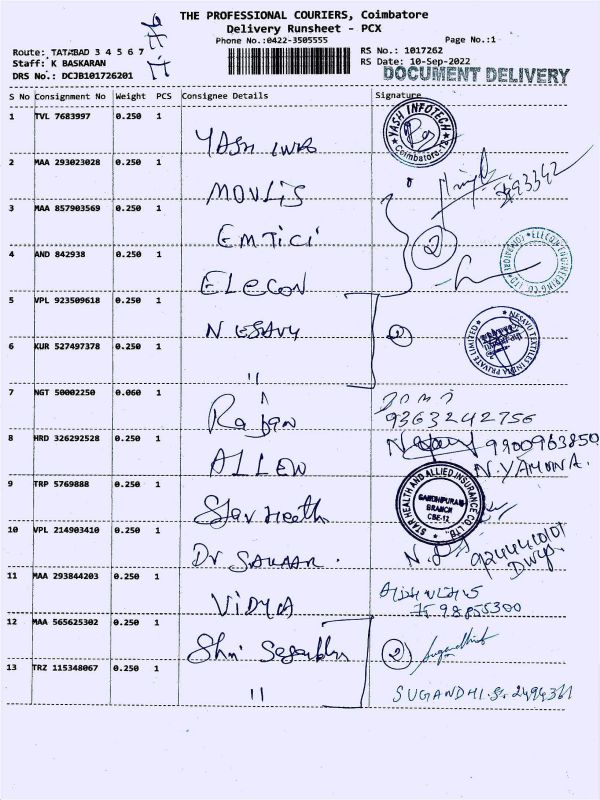 THE PROFESSIONAL COURIERS, Coimbatore
Delivery Runsheet - PCX
Phone No.:0422-3505555 Page No.:1
Route: TATABAD 3 4 5 6 7 RS No.: 1017262
Staff: K BASKARAN RS Date: 10-Sep-2022
DRS No.: DCJB101726201 DOCUMENT DELIVERY
S No Consignment No Weight PCS Consignee Details Signature
1 TVL 7683997 0.250 1 YASH
YASH INFOTECH Coimbatore-12
2 MAA 293023028 0.250 1 MOULIS
3 MAA 857903569 0.250 1 EMTICI 2
4 AND 842938 0.250 1 ELECON
ELECON ENGINEERING CO. LTD.
5 VPL 923509618 0.250 1 NESAVU 2
NESAVU TEXTILES INDIA PRIVATE LIMITED
6 KUR 527497378 0.250 1 "
7 NGT 50002250 0.060 1 Rajan
9363242756
8 HRD 326292528 0.250 1 ALLEN 9900963850
N. YAMUNA.
9 TRP 5769888 0.250 1 Star Health
STAR HEALTH AND ALLIED INSURANCE CO LTD.
GANDHIPURAM
BRANCH
CBE-12
10 VPL 214903410 0.250 1 Dr
11 MAA 293844203 0.250 1 VIDYA
98855300
12 MAA 565625302 0.250 1 Shri 2 Sugandhi
13 TRZ 115348067 0.250 1 " SUGANDHI.S.